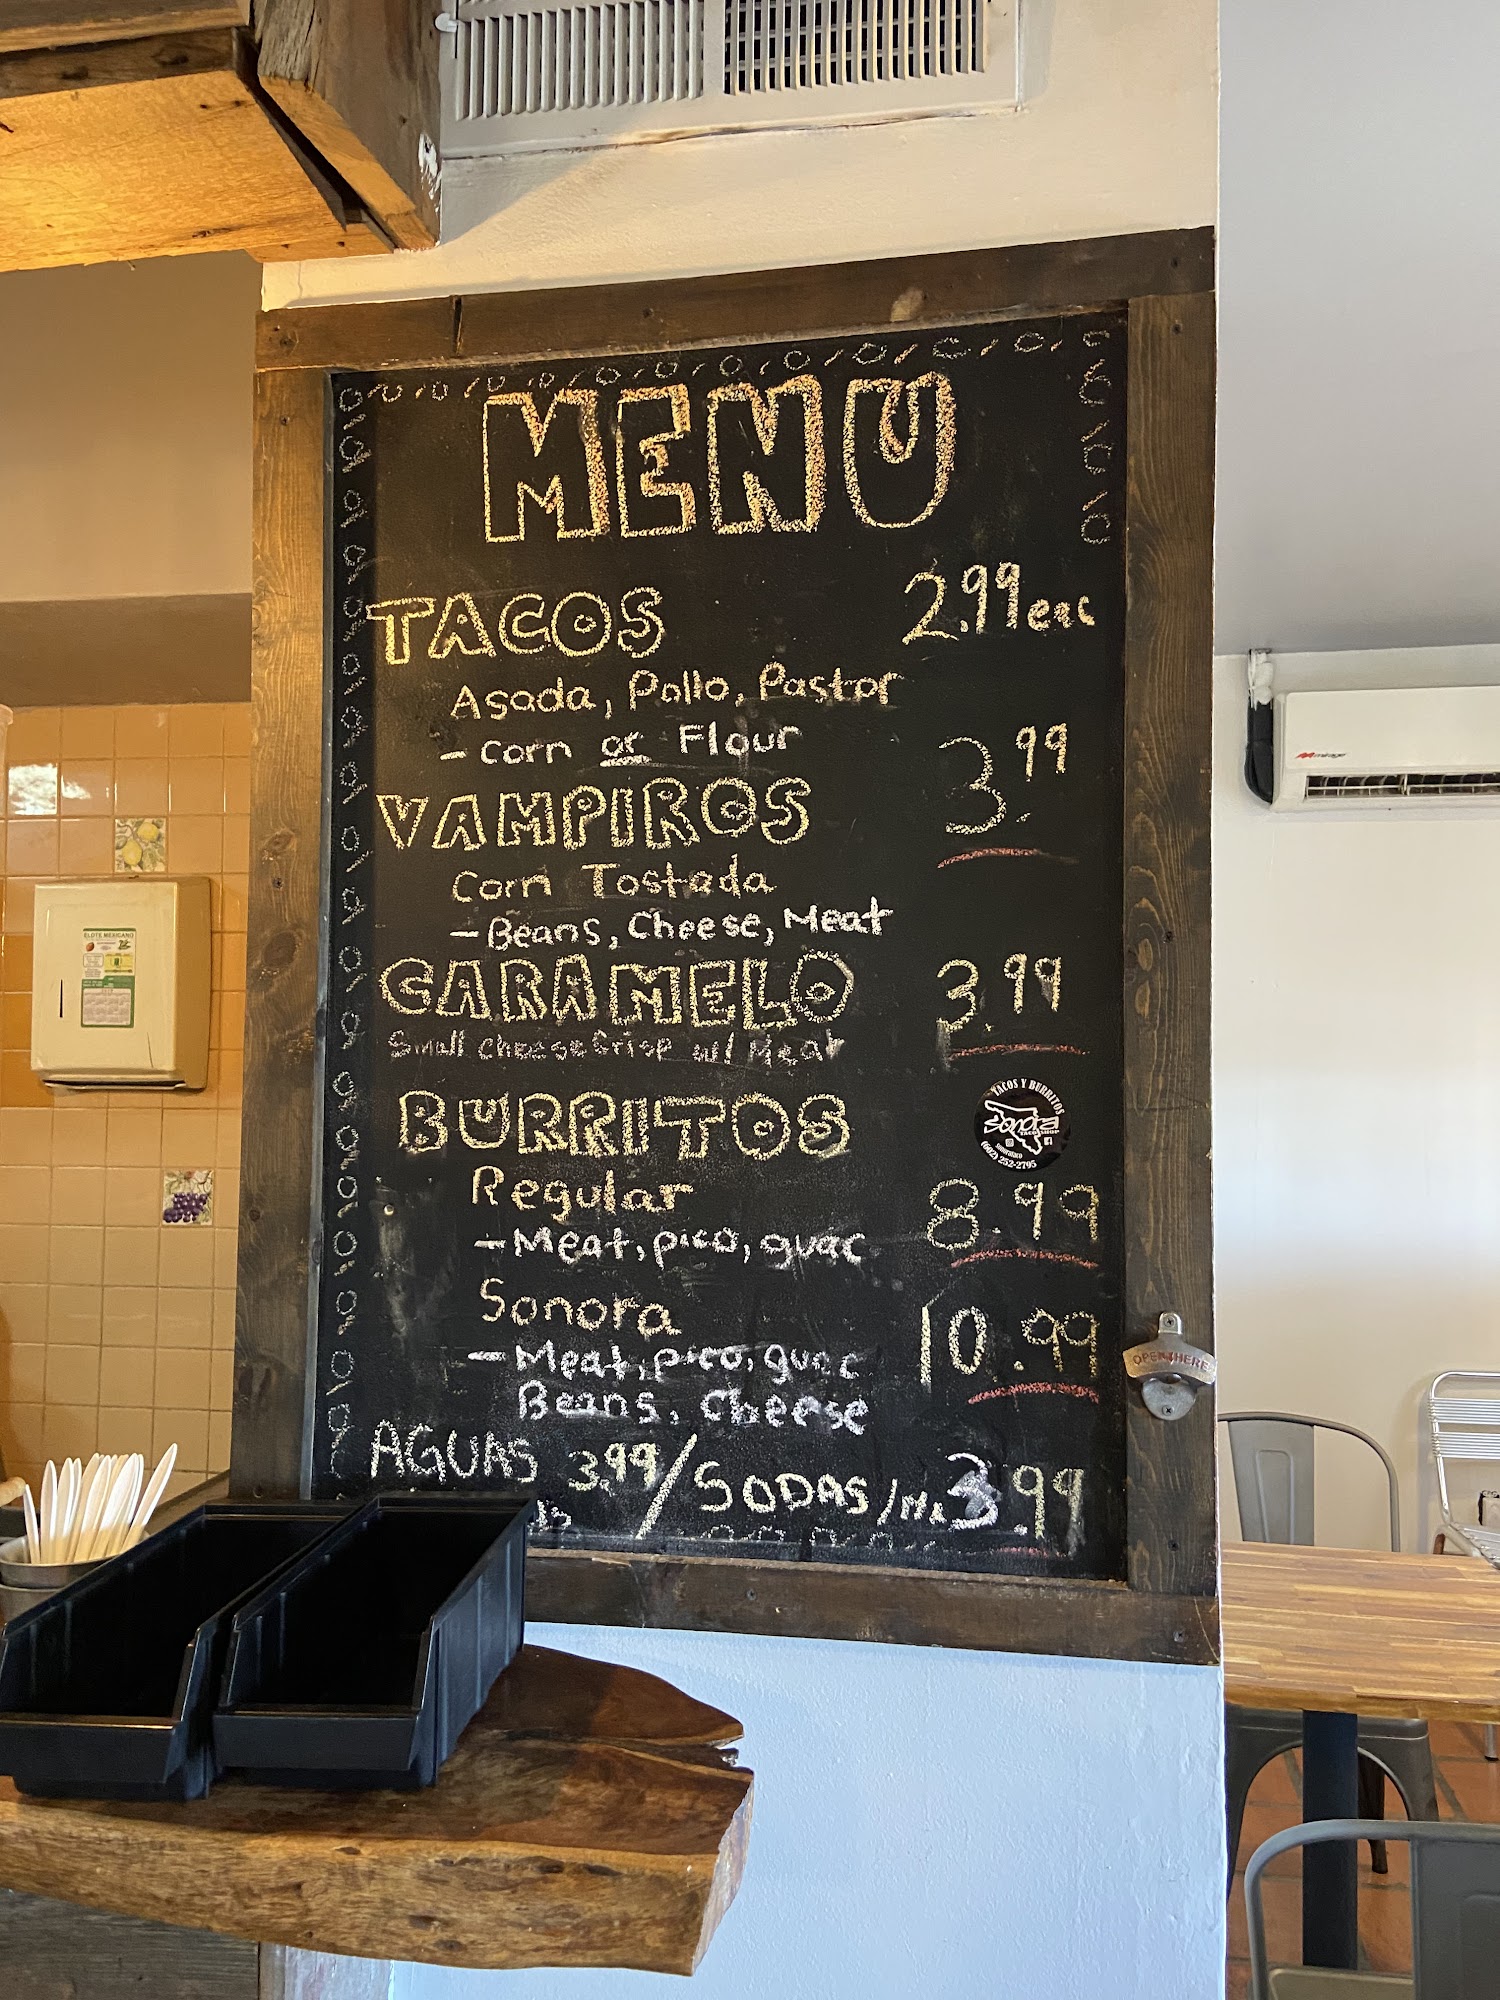 MENU
TACOS 2.99 eac
Asada, Pollo, Pastor
- Corn or Flour
VAMPIROS 3.99
Corn Tostada
- Beans, Cheese, Meat
CARAMELO 3.99
Small cheese Crisp w/ Meat
BURRITOS
TACOS Y BURRITOS
sonora
TACO SHOP
sonorataco
(602) 252-2795
Regular 8.99
- Meat, pico, guac
Sonora 10.99
- Meat, pico, guac
Beans, Cheese
AGUAS 3.99 / SODAS / 3.99
OPEN HERE
mirage
ELOTE MEXICANO